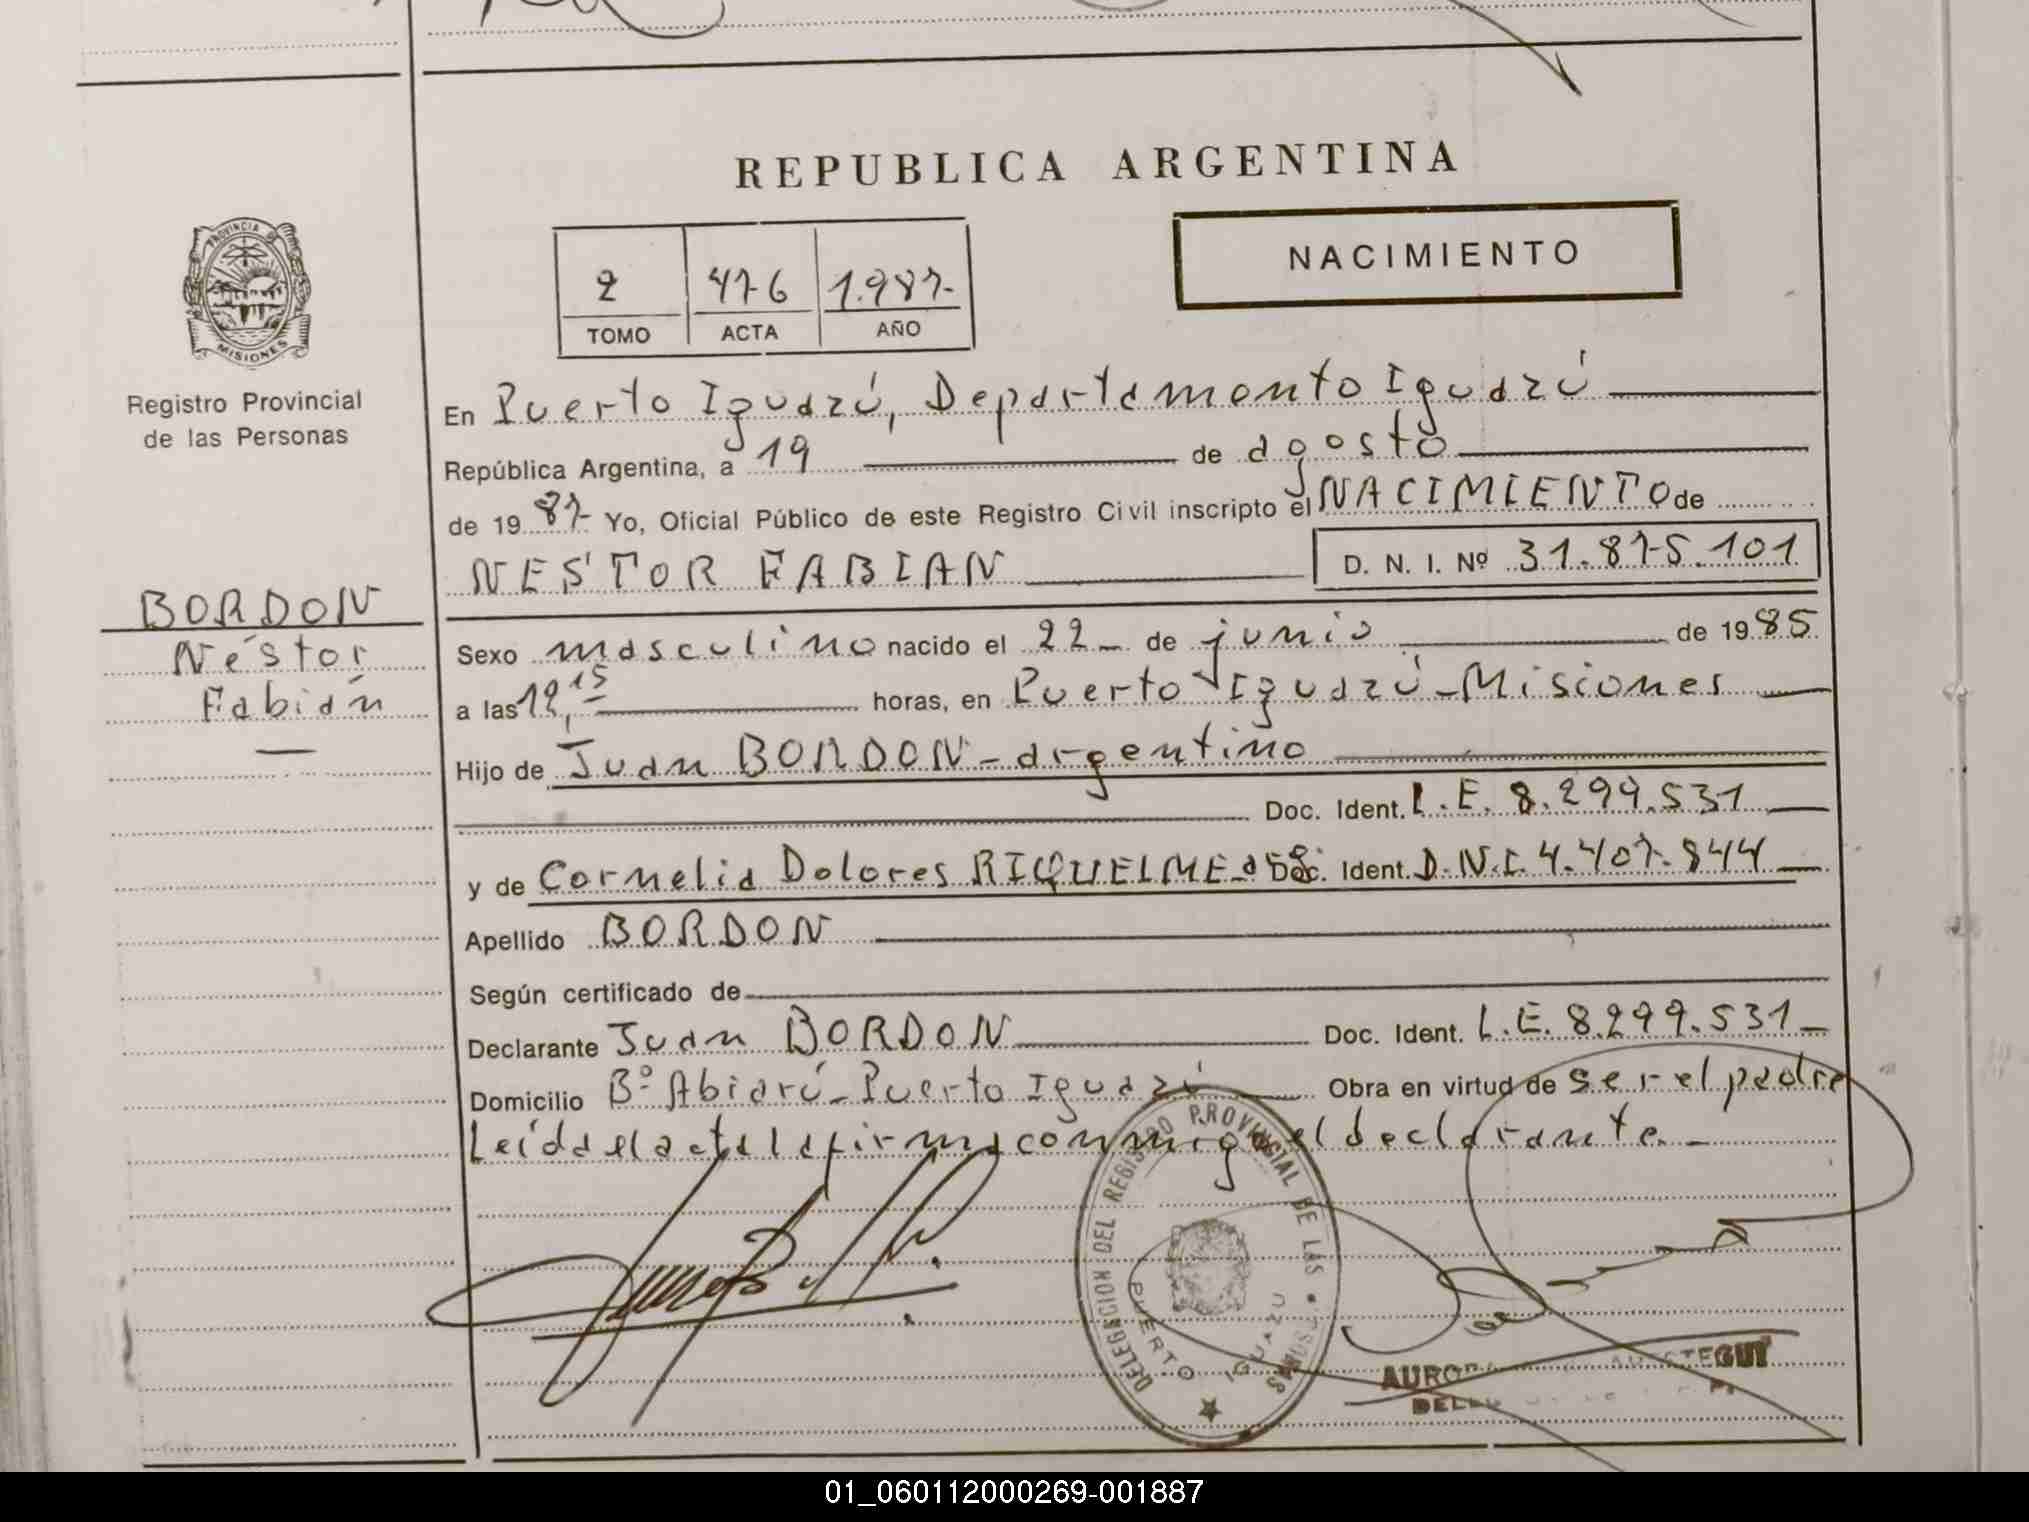 REPUBLICA ARGENTINA
NACIMIENTO
2 476 1.987-
TOMO ACTA AÑO
PROVINCIA DE
MISIONES
Registro Provincial
de las Personas
BORDON
Néstor
Fabián
En Puerto Iguazú, Departamento Iguazú
República Argentina, a 19 de agosto
de 1987- Yo, Oficial Público de este Registro Civil inscripto el NACIMIENTO de
NESTOR FABIAN D. N. I. Nº 31.875.101
Sexo masculino nacido el 22 de junio de 1985
a las 12,15 horas, en Puerto Iguazú - Misiones
Hijo de Juan BORDON - argentino
Doc. Ident. L.E. 8.299.531
y de Cornelia Dolores RIQUELME Doc. Ident. D.N.I. 4.407.844
Apellido BORDON
Según certificado de
Declarante Juan BORDON Doc. Ident. L.E. 8.299.531
Domicilio Bº Abiarú - Puerto Iguazú Obra en virtud de ser el padre
Leída el acta la firma conmigo el declarante.
DELEGACION DEL REGISTRO PROVINCIAL DE LAS
PUERTO IGUAZU
01_060112000269-001887